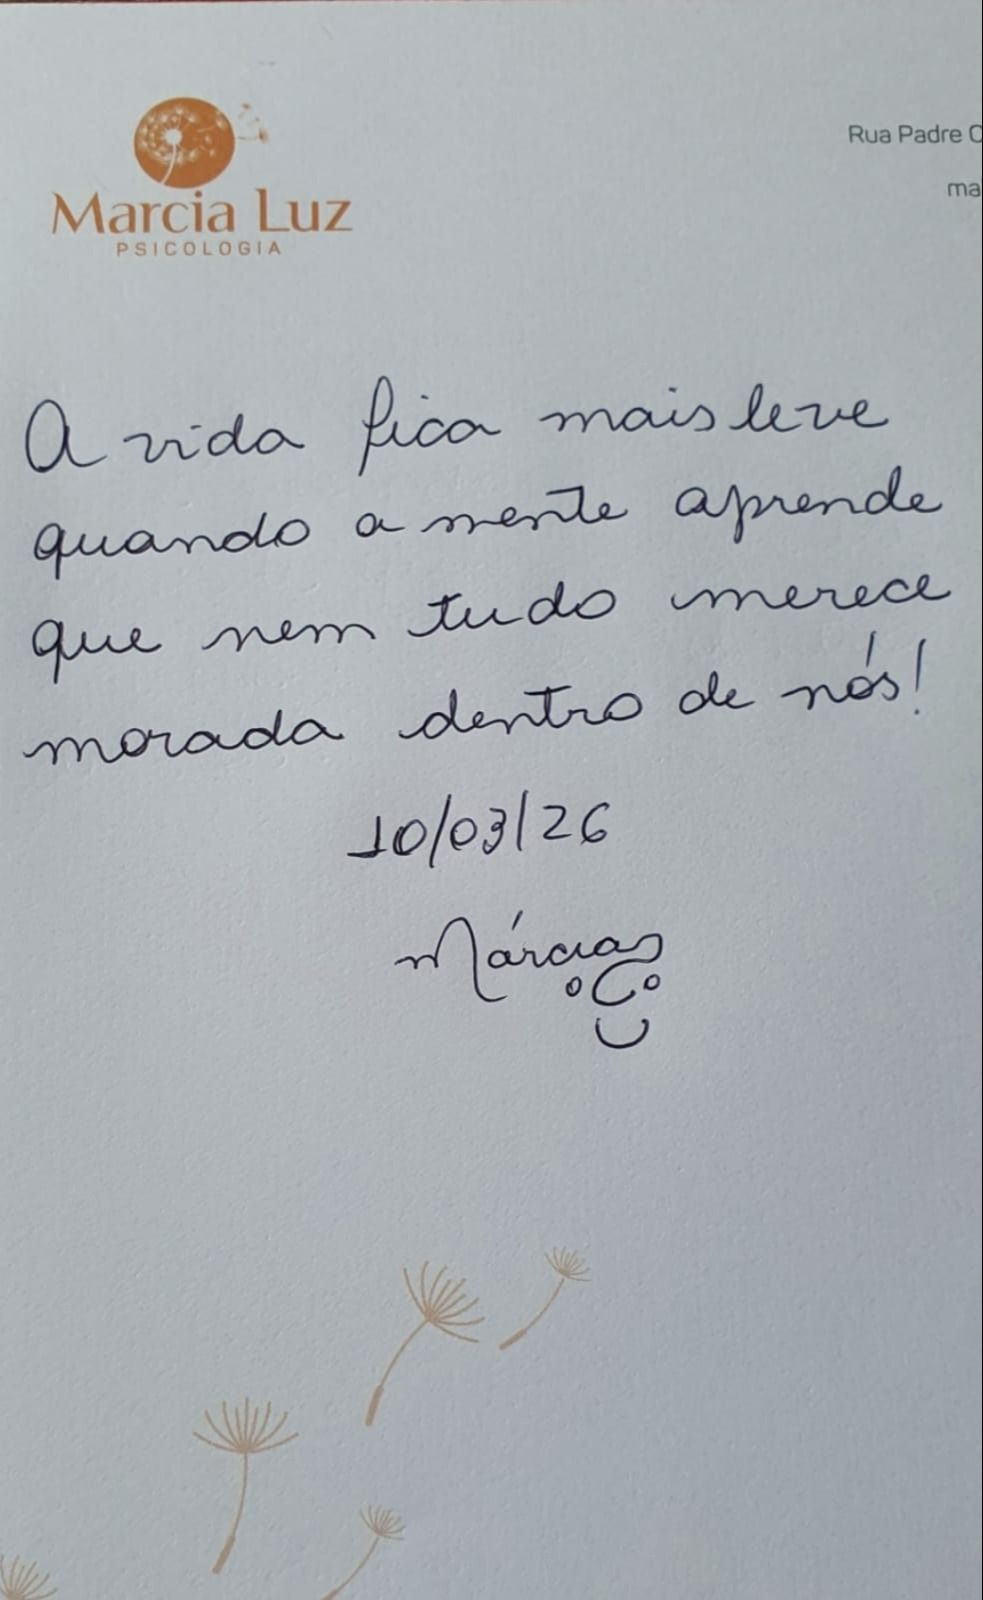 Marcia Luz
PSICOLOGIA
Rua Padre
A vida fica mais leve
quando a mente aprende
que nem tudo merece
morada dentro de nós!
10/03/26
Márcia